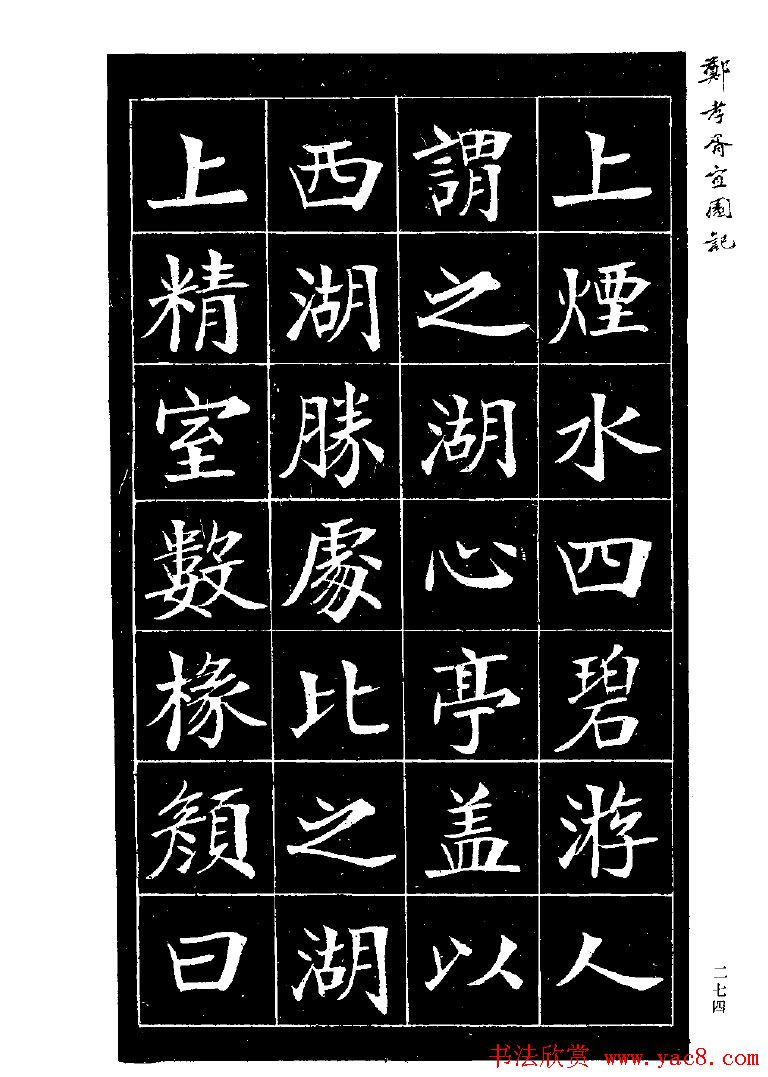 鄭孝胥宜園記
上煙水四碧游人
謂之湖心亭盖以
西湖勝處比之湖
上精室數椽顏曰
二七四
书法欣赏 www.yac8.com